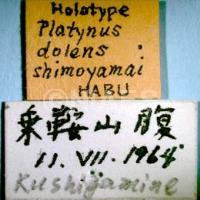 Holotype
Platynus
dolens
shimoyamai
HABU
乗鞍山腹
11. VII. 1964
Kushigamine